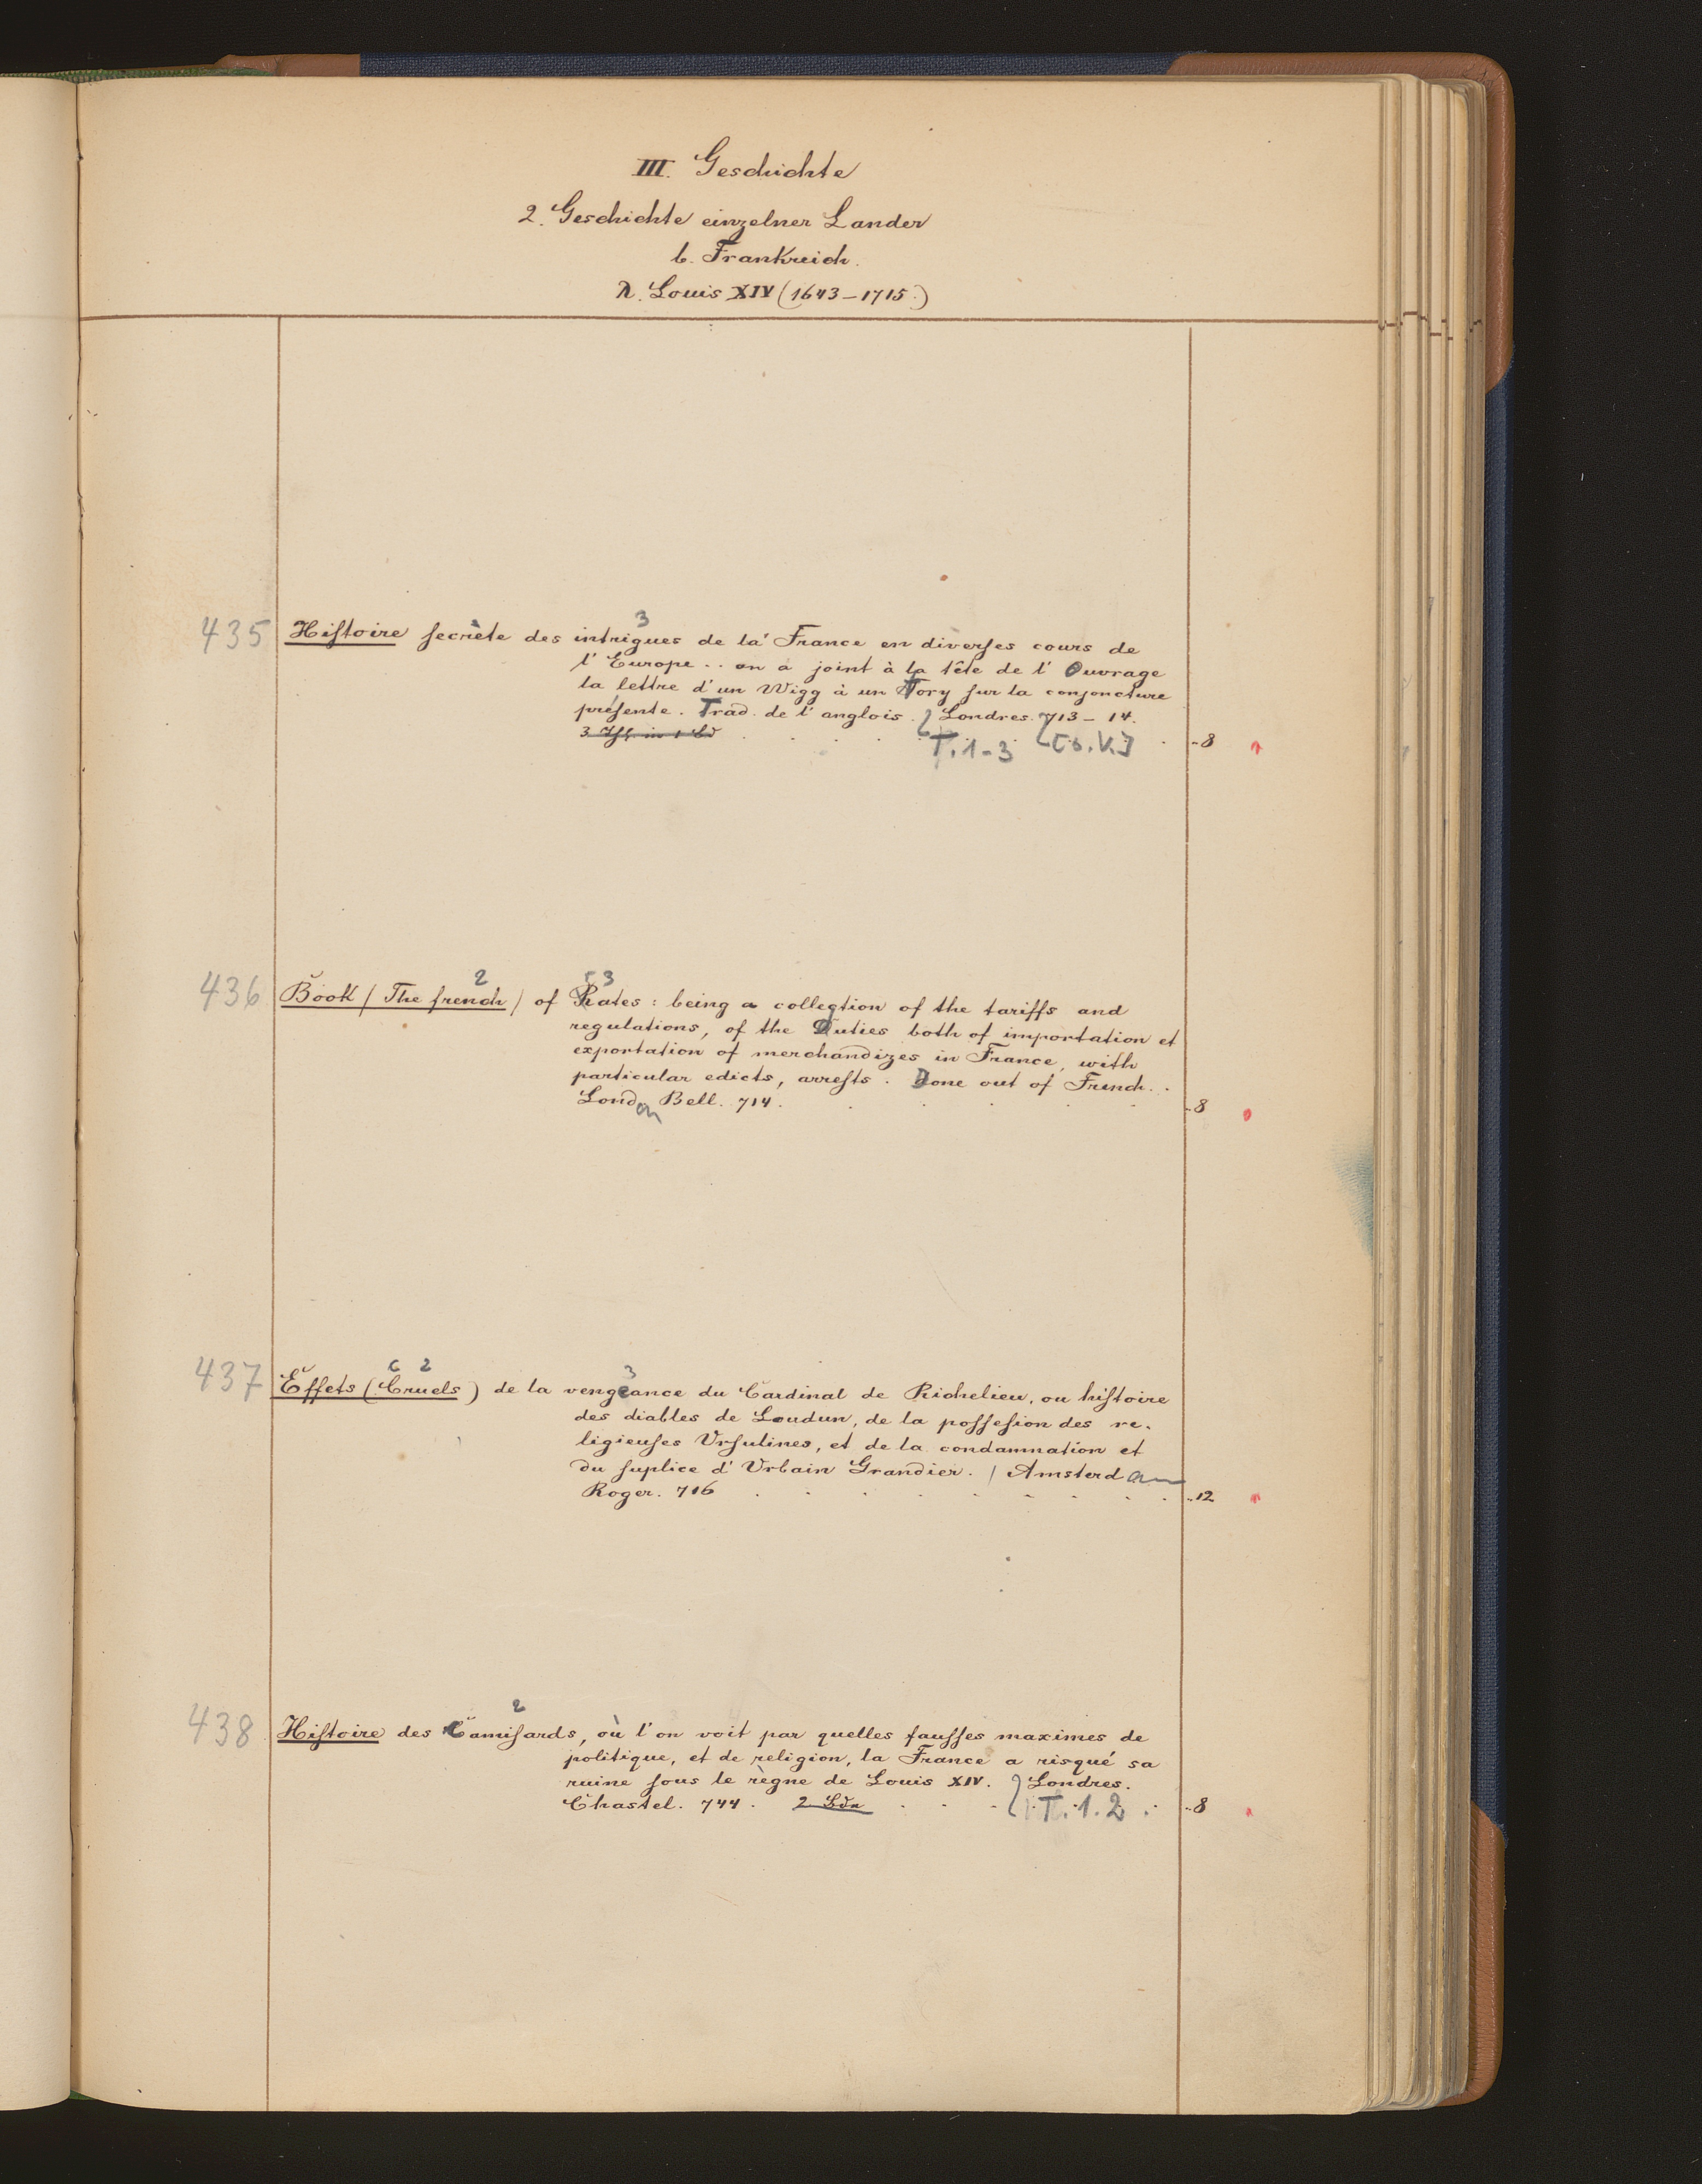 III. Geschichte
2. Geschichte einzelner Lander
b. Frankreich.
λ. Louis XIV (1643–1715.)
3
435 Hiſtoire ſecrète des intrigues de la France en diverſes cours de
l'Europe .. on a joint à la tête de l'Ouvrage
la lettre d'un Wigg à un Tory ſur la conjoncture
préſente. Trad. de l'anglois. Londres. 713–14.
3 in 1 Bd T. 1-3 [s. V.] 8
2 3
436 Book (The french) of Rates: being a collection of the tariffs and
regulations, of the Duties both of importation et
exportation of merchandizes in France, with
particular edicts, arreſts. Done out of French..
London Bell. 714. 8
C 2 3
437 Effets (Cruels) de la vengeance du Cardinal de Richelieu, ou hiſtoire
des diables de Loudun, de la poſſeſion des re-
ligieuſes Urſulines, et de la condamnation et
du ſuplice d'Urbain Grandier. / Amsterdam
Roger. 716 12
2
438 Hiſtoire des Camiſards, où l'on voit par quelles fauſſes maximes de
politique, et de religion, la France a risqué sa
ruine ſous le règne de Louis XIV. Londres.
Chastel. 744. 2 Bde T. 1. 2. 8